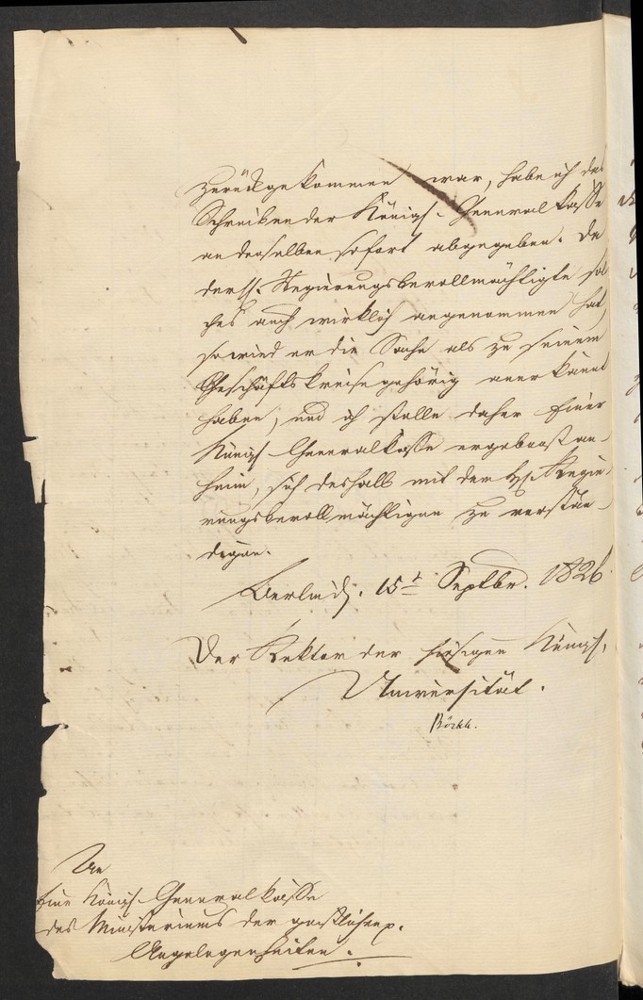 zurückgekommen war, habe ich das
Schreiben der Königl. General Kasse
an denselben sofort abgegeben. Da
der H. Regierungsbevollmächtigte sol
ches auch wirklich angenommen hat,
so wird er die Sache als zu seinem
Geschäftskreise gehörig anerkannt
haben, und ich stelle daher Einer
Königl Generalkasse ergebenst an-
heim, sich deshalb mit der H. Regie-
rungsbevollmächtigen zu verstän-
digen.
Berlin d. 15t Septbr. 1826.
Der Rektor der hiesigen Königl.
Universität.
Böckh.
An
Eine Königl. Generalkasse
des Ministeriums der geistlichen p.
Angelegenheiten.